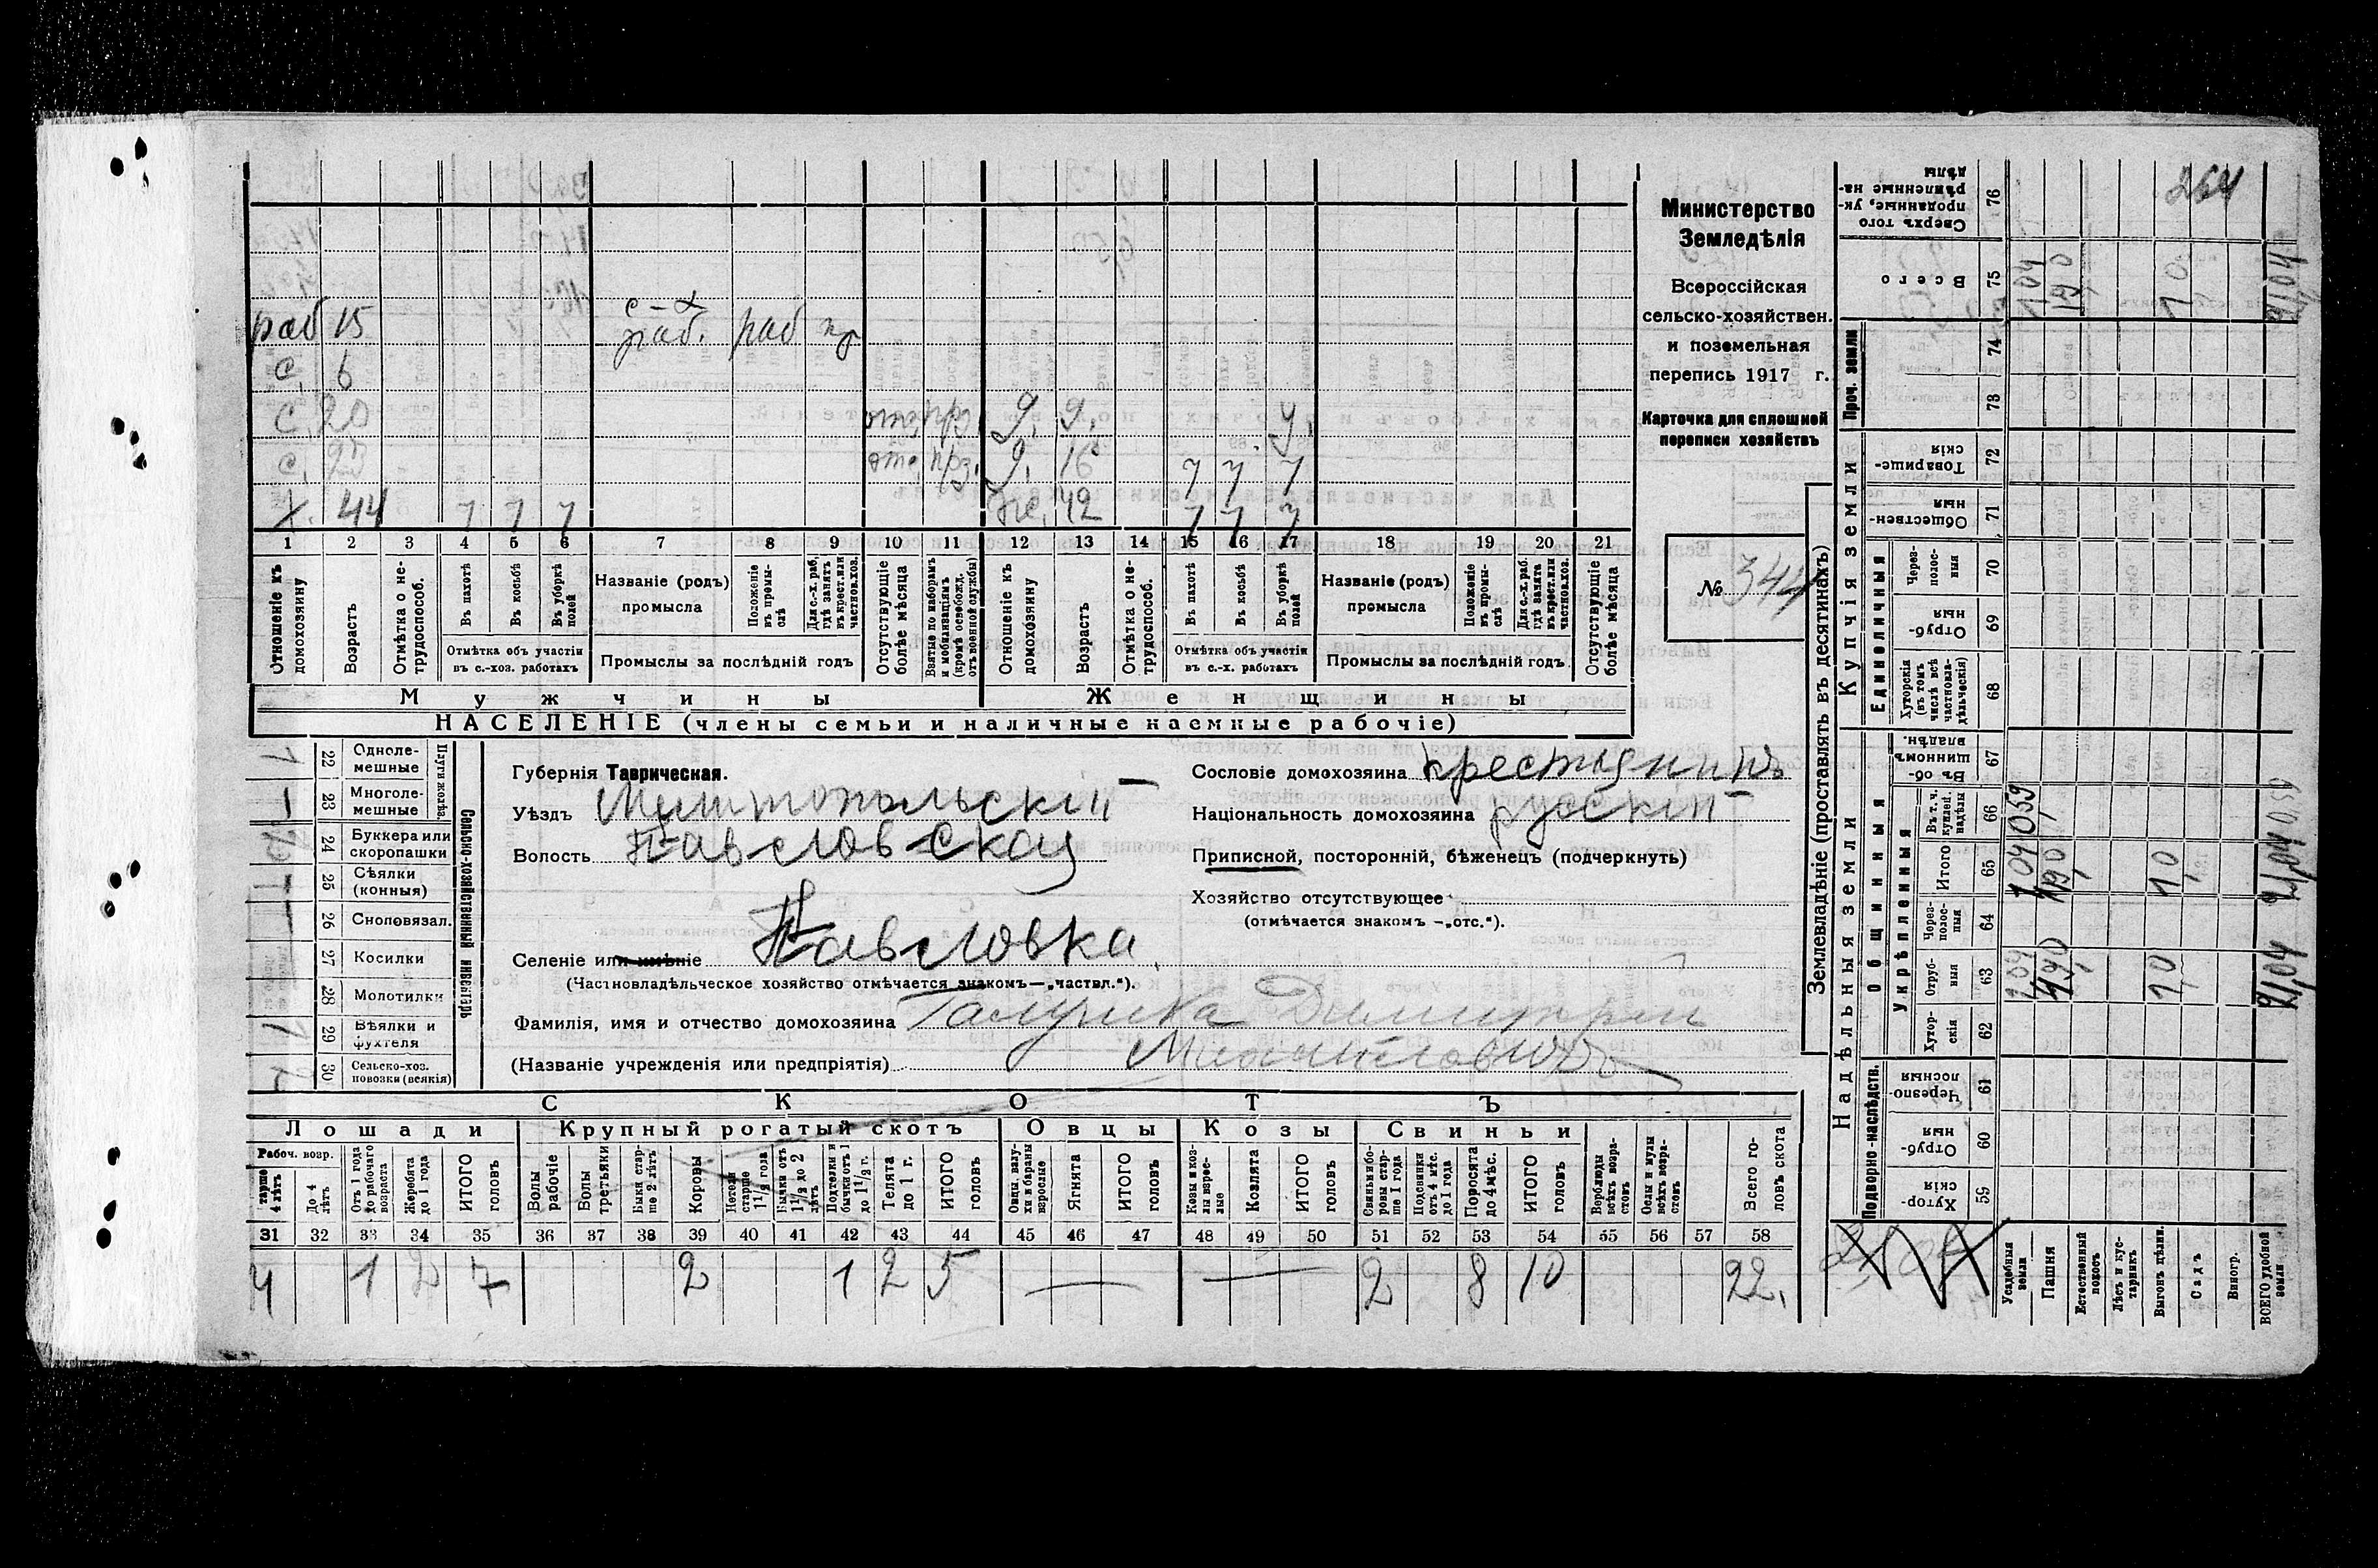 раб 15 с-х раб. раб кр
с. 6
с. 20 отс. д. 9. у.
с. отс. д. 16 у у у
х. 44 у у у же. 42 у у у
1 2 3 4 5 6 7 8 9 10 11 12 13 14 15 16 17 18 19 20 21
Отношеніе къ домохозяину
Возрастъ
Отмѣтка о нетрудоспособ.
Въ пахотѣ
Въ косьбѣ
Въ уборкѣ полей
Отмѣтка объ участіи въ с.-хоз. работахъ
Названіе (родъ) промысла
Положеніе въ промыслѣ
Для с.-х. раб. гдѣ занятъ въ крест. или частновл. хоз.
Промыслы за послѣдній годъ
Отсутствующіе болѣе мѣсяца
Взятые по наборамъ и мобилизаціямъ (кромѣ освобожд. отъ военной службы)
Отношеніе къ домохозяину
Возрастъ
Отмѣтка о нетрудоспособ.
Въ пахотѣ
Въ косьбѣ
Въ уборкѣ полей
Отмѣтка объ участіи въ с.-х. работахъ
Названіе (родъ) промысла
Положеніе въ промыслѣ
Для с.-х. раб. гдѣ занята въ крест. или частновл. хоз.
Промыслы за послѣдній годъ.
Отсутствующіе болѣе мѣсяца
Мужчины
Женщины
НАСЕЛЕНІЕ (члены семьи и наличные наемные рабочіе)
Министерство
Земледѣлія
Всероссійская
сельско-хозяйствен.
и поземельная
перепись 1917 г.
Карточка для сплошной
переписи хозяйствъ
№ 344
Сельско-хозяйственный инвентарь
Плуги желѣз.
22 Однолемешные 1
23 Многолемешные 1
24 Буккера или скоропашки
25 Сѣялки (конныя) 1
26 Сноповязал.
27 Косилки
28 Молотилки
29 Вѣялки и фухтеля 1
30 Сельско-хоз. повозки (всякія)
Губернія Таврическая.
Уѣздъ Мелитопольскій
Волость Павловская
Селеніе или имѣніе Павловка
(Частновладѣльческое хозяйство отмѣчается знакомъ—„частвл.“).
Фамилія, имя и отчество домохозяина Галушка Димитрій
(Названіе учрежденія или предпріятія) Михайловичъ
Сословіе домохозяина крестьянинъ
Національность домохозяина русскій
Приписной, посторонній, бѣженецъ (подчеркнуть)
Хозяйство отсутствующее
(отмѣчается знакомъ —„отс.“).
СКОТЪ
Лошади
Крупный рогатый скотъ
Овцы
Козы
Свиньи
Рабоч. возр.
Старше 4 лѣтъ
До 4 лѣтъ
Отъ 1 года до рабочаго возраста
Жеребята до 1 года
ИТОГО головъ
Волы рабочіе
Волы третьяки
Быки старше 2 лѣтъ
Коровы
Нетели старше 1½ года
Бычки отъ 1½ до 2 лѣтъ
Подтелки и бычки отъ 1 до 1½ г.
Телята до 1 г.
ИТОГО головъ
Овцы, валухи и бараны взрослые
Ягнята
ИТОГО головъ
Козы и козлы взрослые
Козлята
ИТОГО головъ
Свиньи и боровы старше 1 года
Подсвинки отъ 4 мѣс. до 1 года
Поросята до 4 мѣс.
ИТОГО головъ
Верблюды всѣхъ возрастовъ
Ослы и мулы всѣхъ возрастовъ
Всего головъ скота
31 32 33 34 35 36 37 38 39 40 41 42 43 44 45 46 47 48 49 50 51 52 53 54 55 56 57 58
4 1 2 7 2 1 2 5 — — 2 8 10 22.
Землевладѣніе (проставлять въ десятинахъ)
Надѣльныя земли
Купчія земли
Проч. земли
Подворно-наслѣдств.
Общинныя
Укрѣпленныя
Единоличныя
59 Хуторскія
60 Отрубныя
61 Черезполосныя
62 Хуторскія
63 Отрубныя
64 Черезполосныя
65 Итого
66 Въ т. ч. куплен. надѣлы
67 Въ общинномъ владѣн.
68 Хуторскія (въ томъ числѣ всѣ частновладѣльческія)
69 Отрубныя
70 Черезполосныя
71 Общественныя
72 Товарищескія
73
74
75 Всего
76 Сверхъ того проданные, укрѣпленные надѣлы
Усадебныя земли
Пашня
Естественный покосъ
Лѣсъ и кустарникъ
Выгонъ цѣлин.
Садъ
Виногр.
ВСЕГО удобной земли
1,04 19,0 1,0 21,04
0,59
264